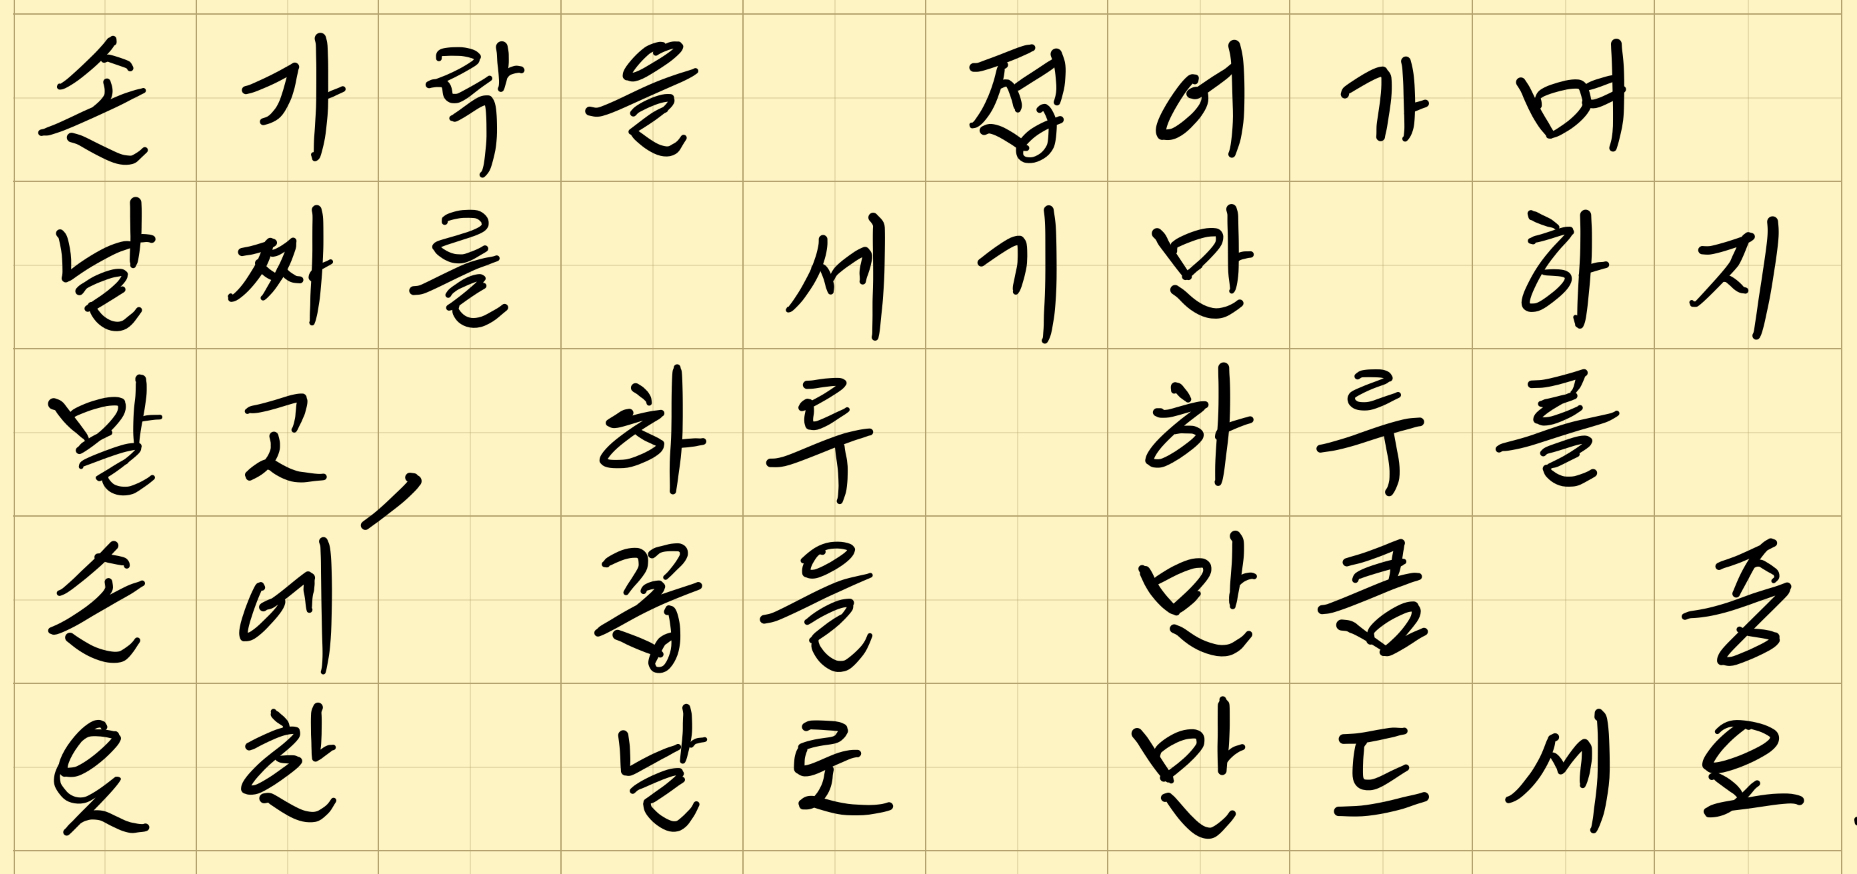 손가락을 접어가며
날짜를 세기만 하지
말고, 하루 하루를
손에 꼽을 만큼 중
요한 날로 만드세요.